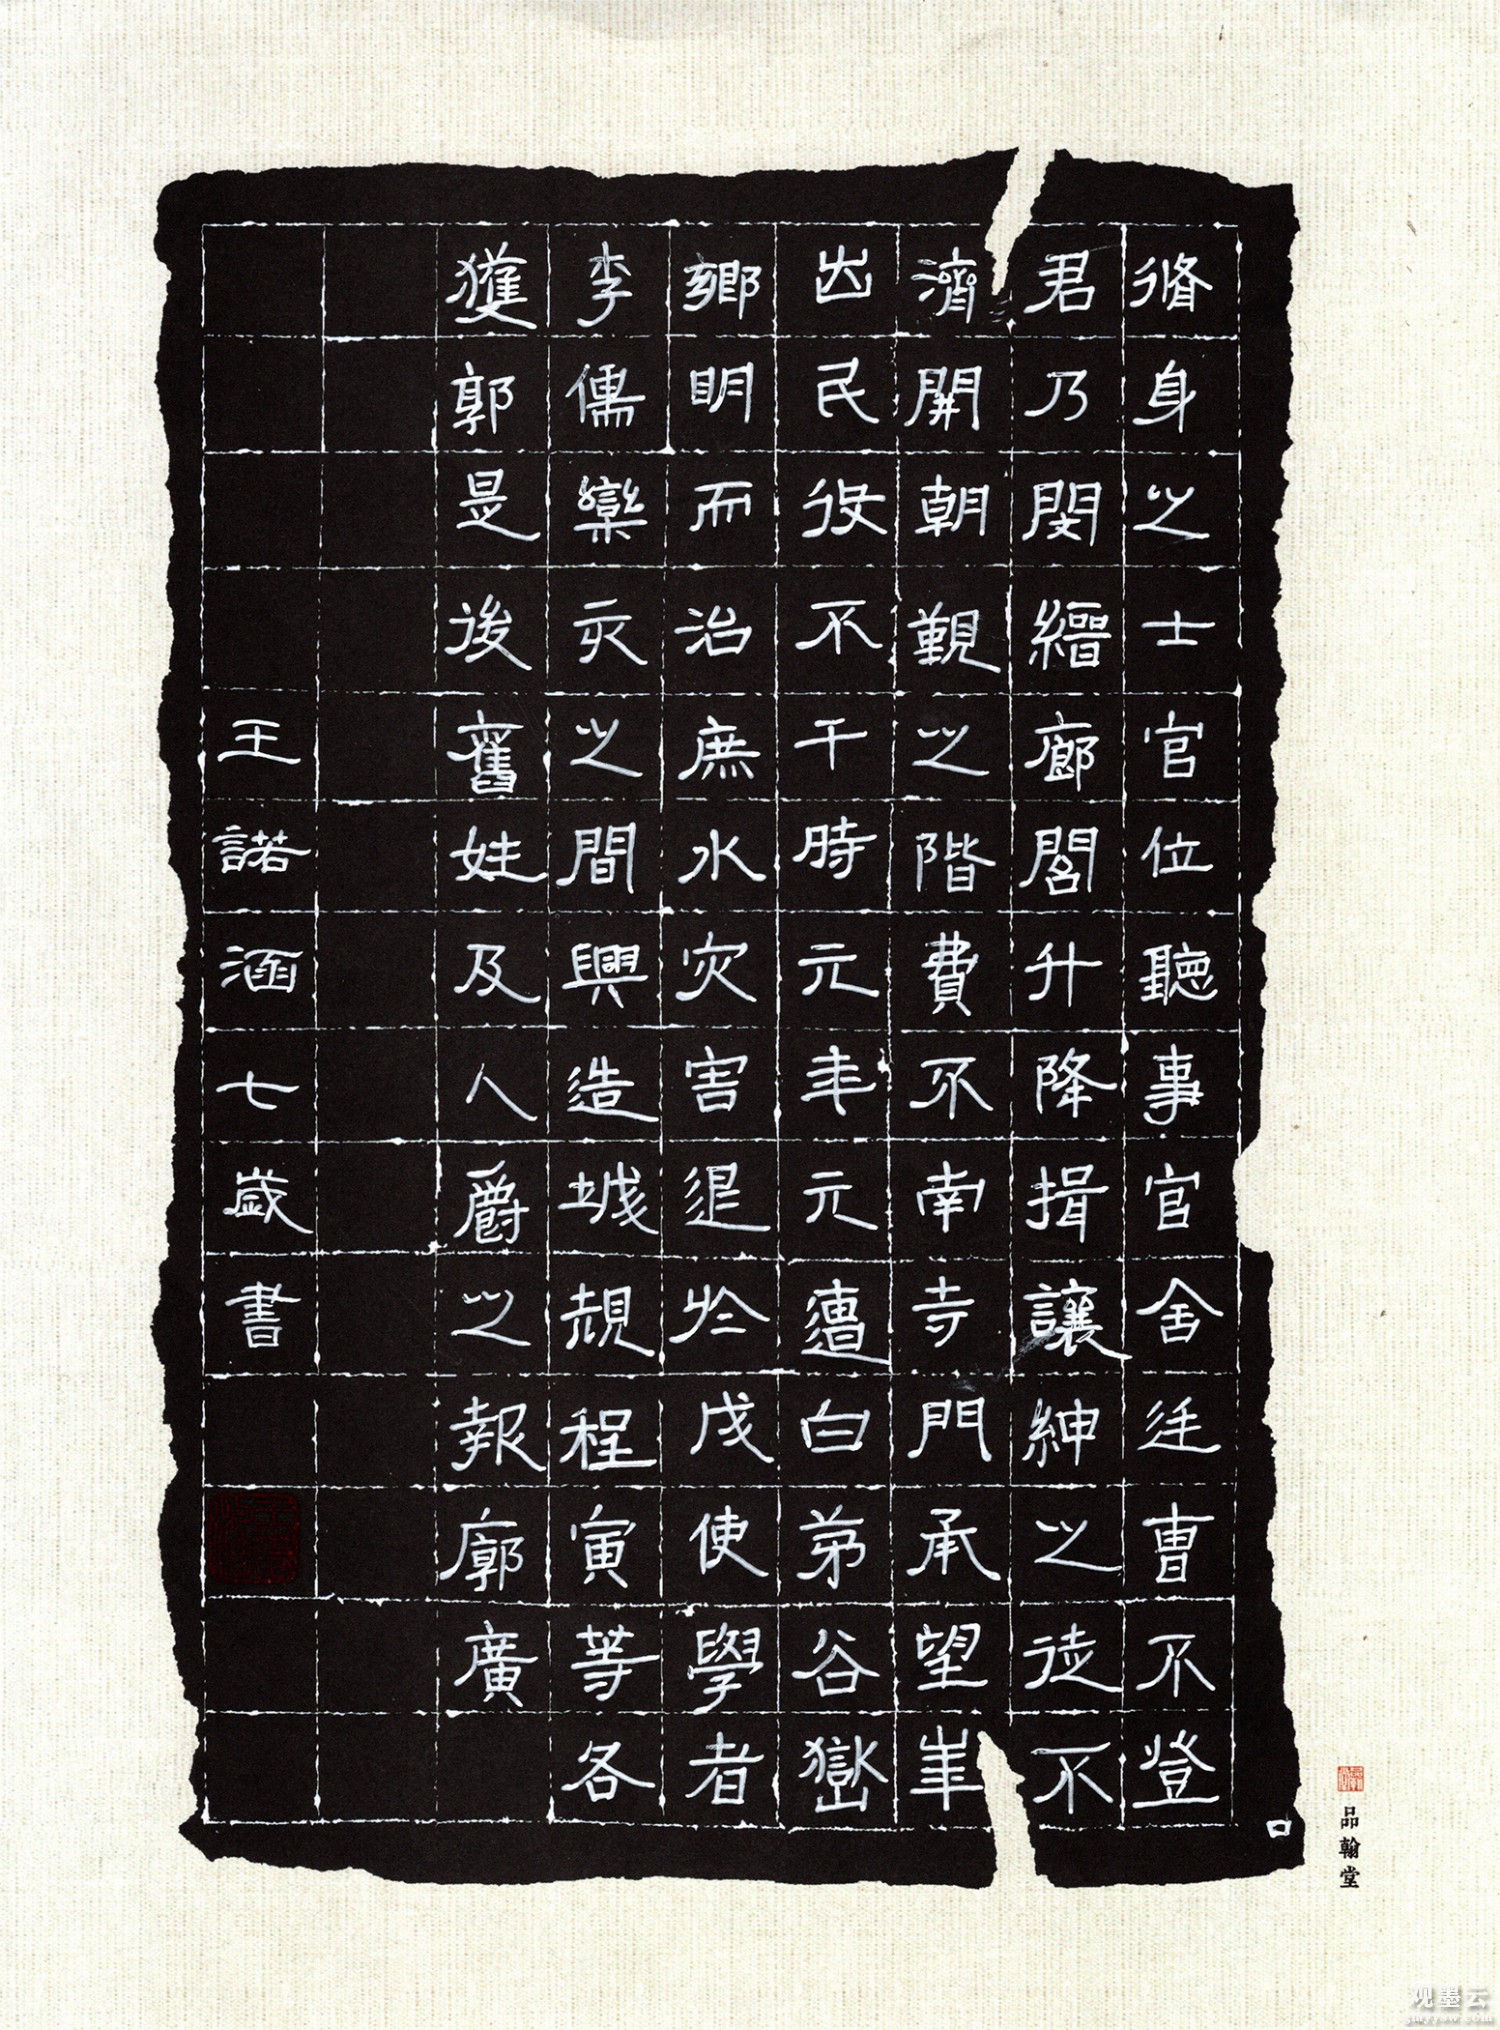 脩身之士官位聽事官舍廷曹不登
君乃閔縉廊閣升降揖讓紳之徒不
濟開朝覲之階費不南寺門承望崋
出民役不干時元年元遭白茅谷嶽
鄉明而治庶水灾害退於戊使學者
李儒欒灾之間興造城規程寅等各
獲郭是後舊姓及人爵之報廓廣
王諾涵七歲書
品翰堂
观墨云